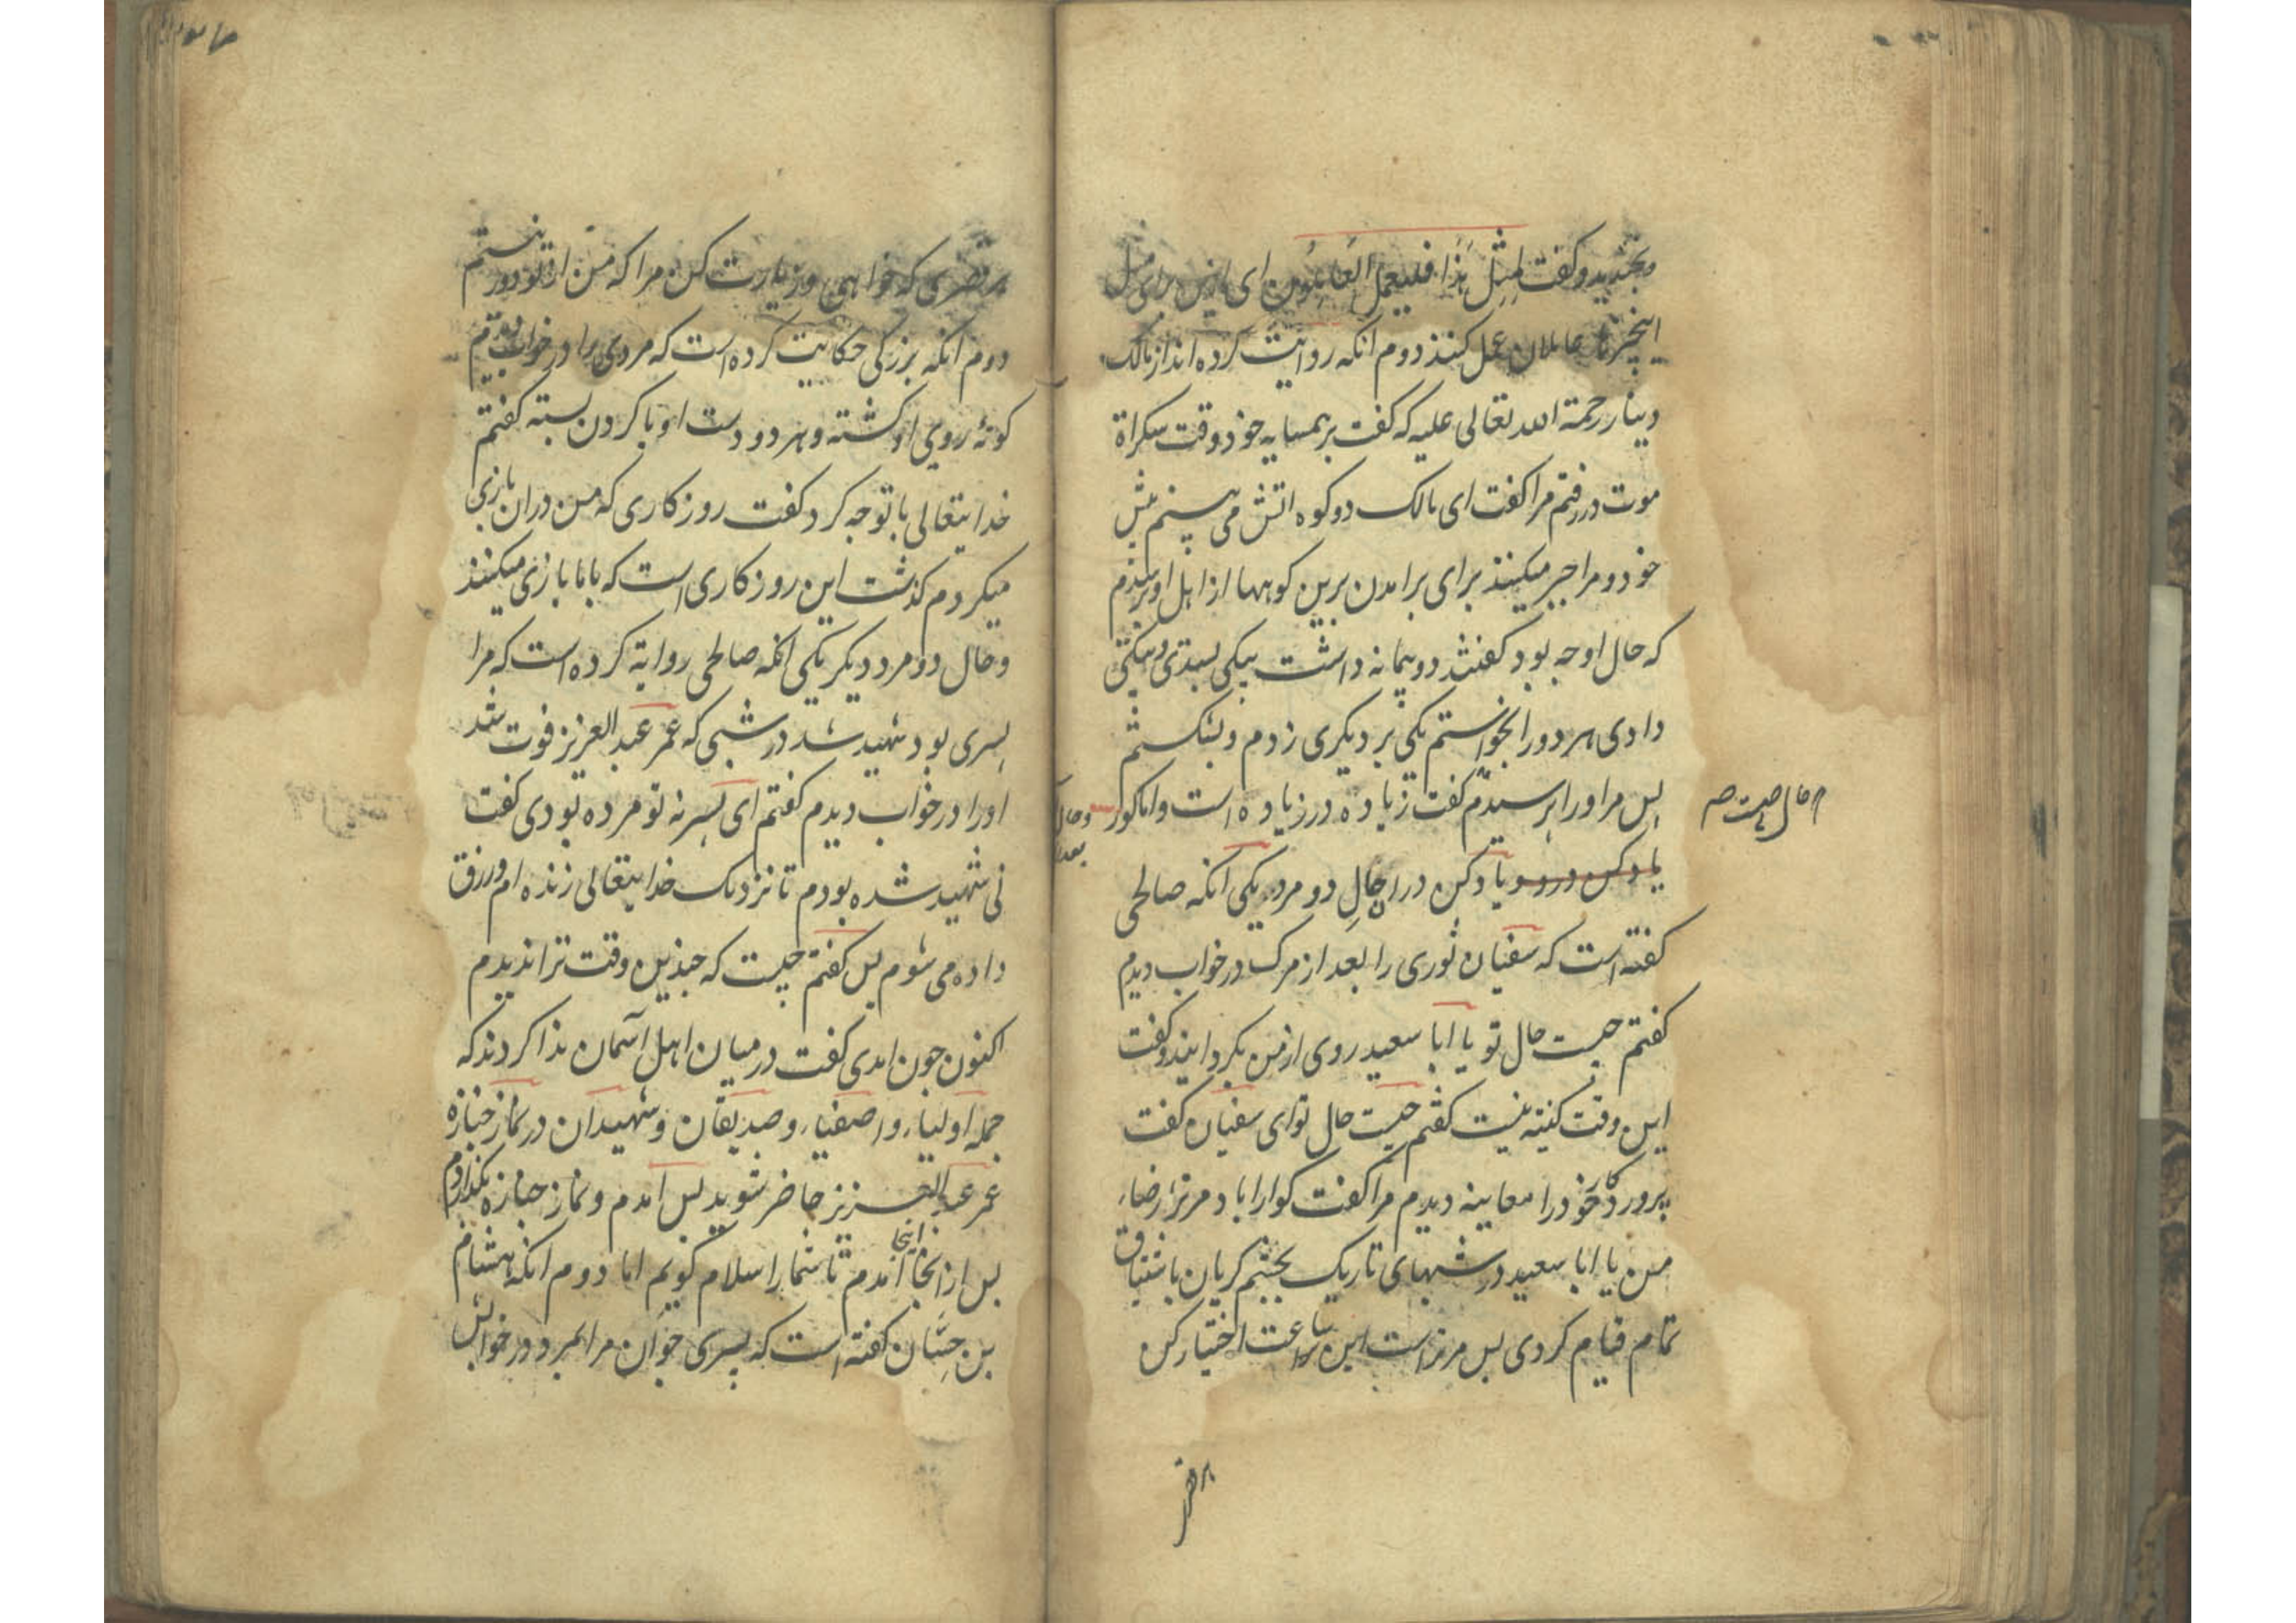 وبخندید و کفت لِمِثْلِ هٰذَا فَلْیَعْمَلِ الْعَامِلُون ای از این برای مثل
اینچیزها عاملان عمل کنند دوم انکه روایت کرده اند از مالک
دینار رحمة الله تعالی علیه که کفت بر همسایه خود وقت سکراة
موت در رفتم مرا کفت ای مالک دو کوه اتش می بینم پیش
خود و مرا جبر میکنند برای برامدن برین کوهها از اهل او پرسیدم
که حال او چه بود کفتند دو پیمانه داشت بیکی بستدی و بیکی
دادی هر دو را بخواستم یکی بر دیکری زدم و بشکستم
پس مر او را پرسیدم کفت زیاده در زیاده است واما کور
یاد کن در و یاد کن در حال دو مرد یکی انکه صالحی
کفته است که سفیان ثوری را بعد از مرک در خواب دیدم
کفتم چیست حال تو یا ابا سعید روی از من بکردانید و کفت
این وقت کنیة نیست کفتم چیست حال تو ای سفیان کفت
پروردکار خود را معاینه دیدم مرا کفت کوارا باد مر ترا رضاء
من یا ابا سعید در شبهای تاریک بچشم کریان باشتیاق
تمام قیام کردی پس مر تراست این ساعت اختیار کن
هر قصری که خواهی و زیارت کن مرا که من از تو دور نیستم
دوم انکه بزرکی حکایت کرده است که مردی را در خواب دیدم
کونهٔ روی او کشته و هر دو دست او با کردن بسته کفتم
خدایتعالی با تو چه کرد کفت روزکاری که من دران بازی
میکردم کذشت این روزکاری است که بابا بازی میکنند
وحال دو مرد دیکر یکی انکه صالحی روایة کرده است که مرا
پسری بود شهید شد در شبی که عمر عبد العزیز فوت شد
او را در خواب دیدم کفتم ای پسر نه تو مرده بودی کفت
نی شهید شده بودم تا نزدیک خدایتعالی زنده ام و رزق
داده می شوم پس کفتم چیست که چندین وقت ترا ندیدم
اکنون چون امدی کفت در میان اهل آسمان ندا کردند که
جمله اولیاء و اصفیاء و صدیقان و شهیدان در نماز جنازه
عمر عبد العزیز حاضر شوید پس امدم و نماز جنازه بکذاردم
پس از انجا اینجا آمدم تا شما را سلام کویم اما دوم انکه هشام
بن حسَّان کفته است که پسری جوان مرا بمرد و در خوابش